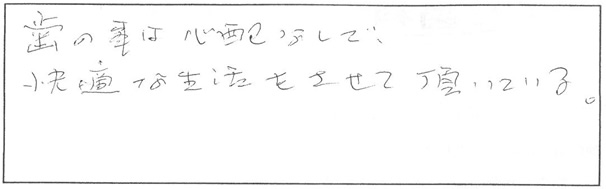 歯の事は心配なしで、
快適な生活をさせて頂いている。